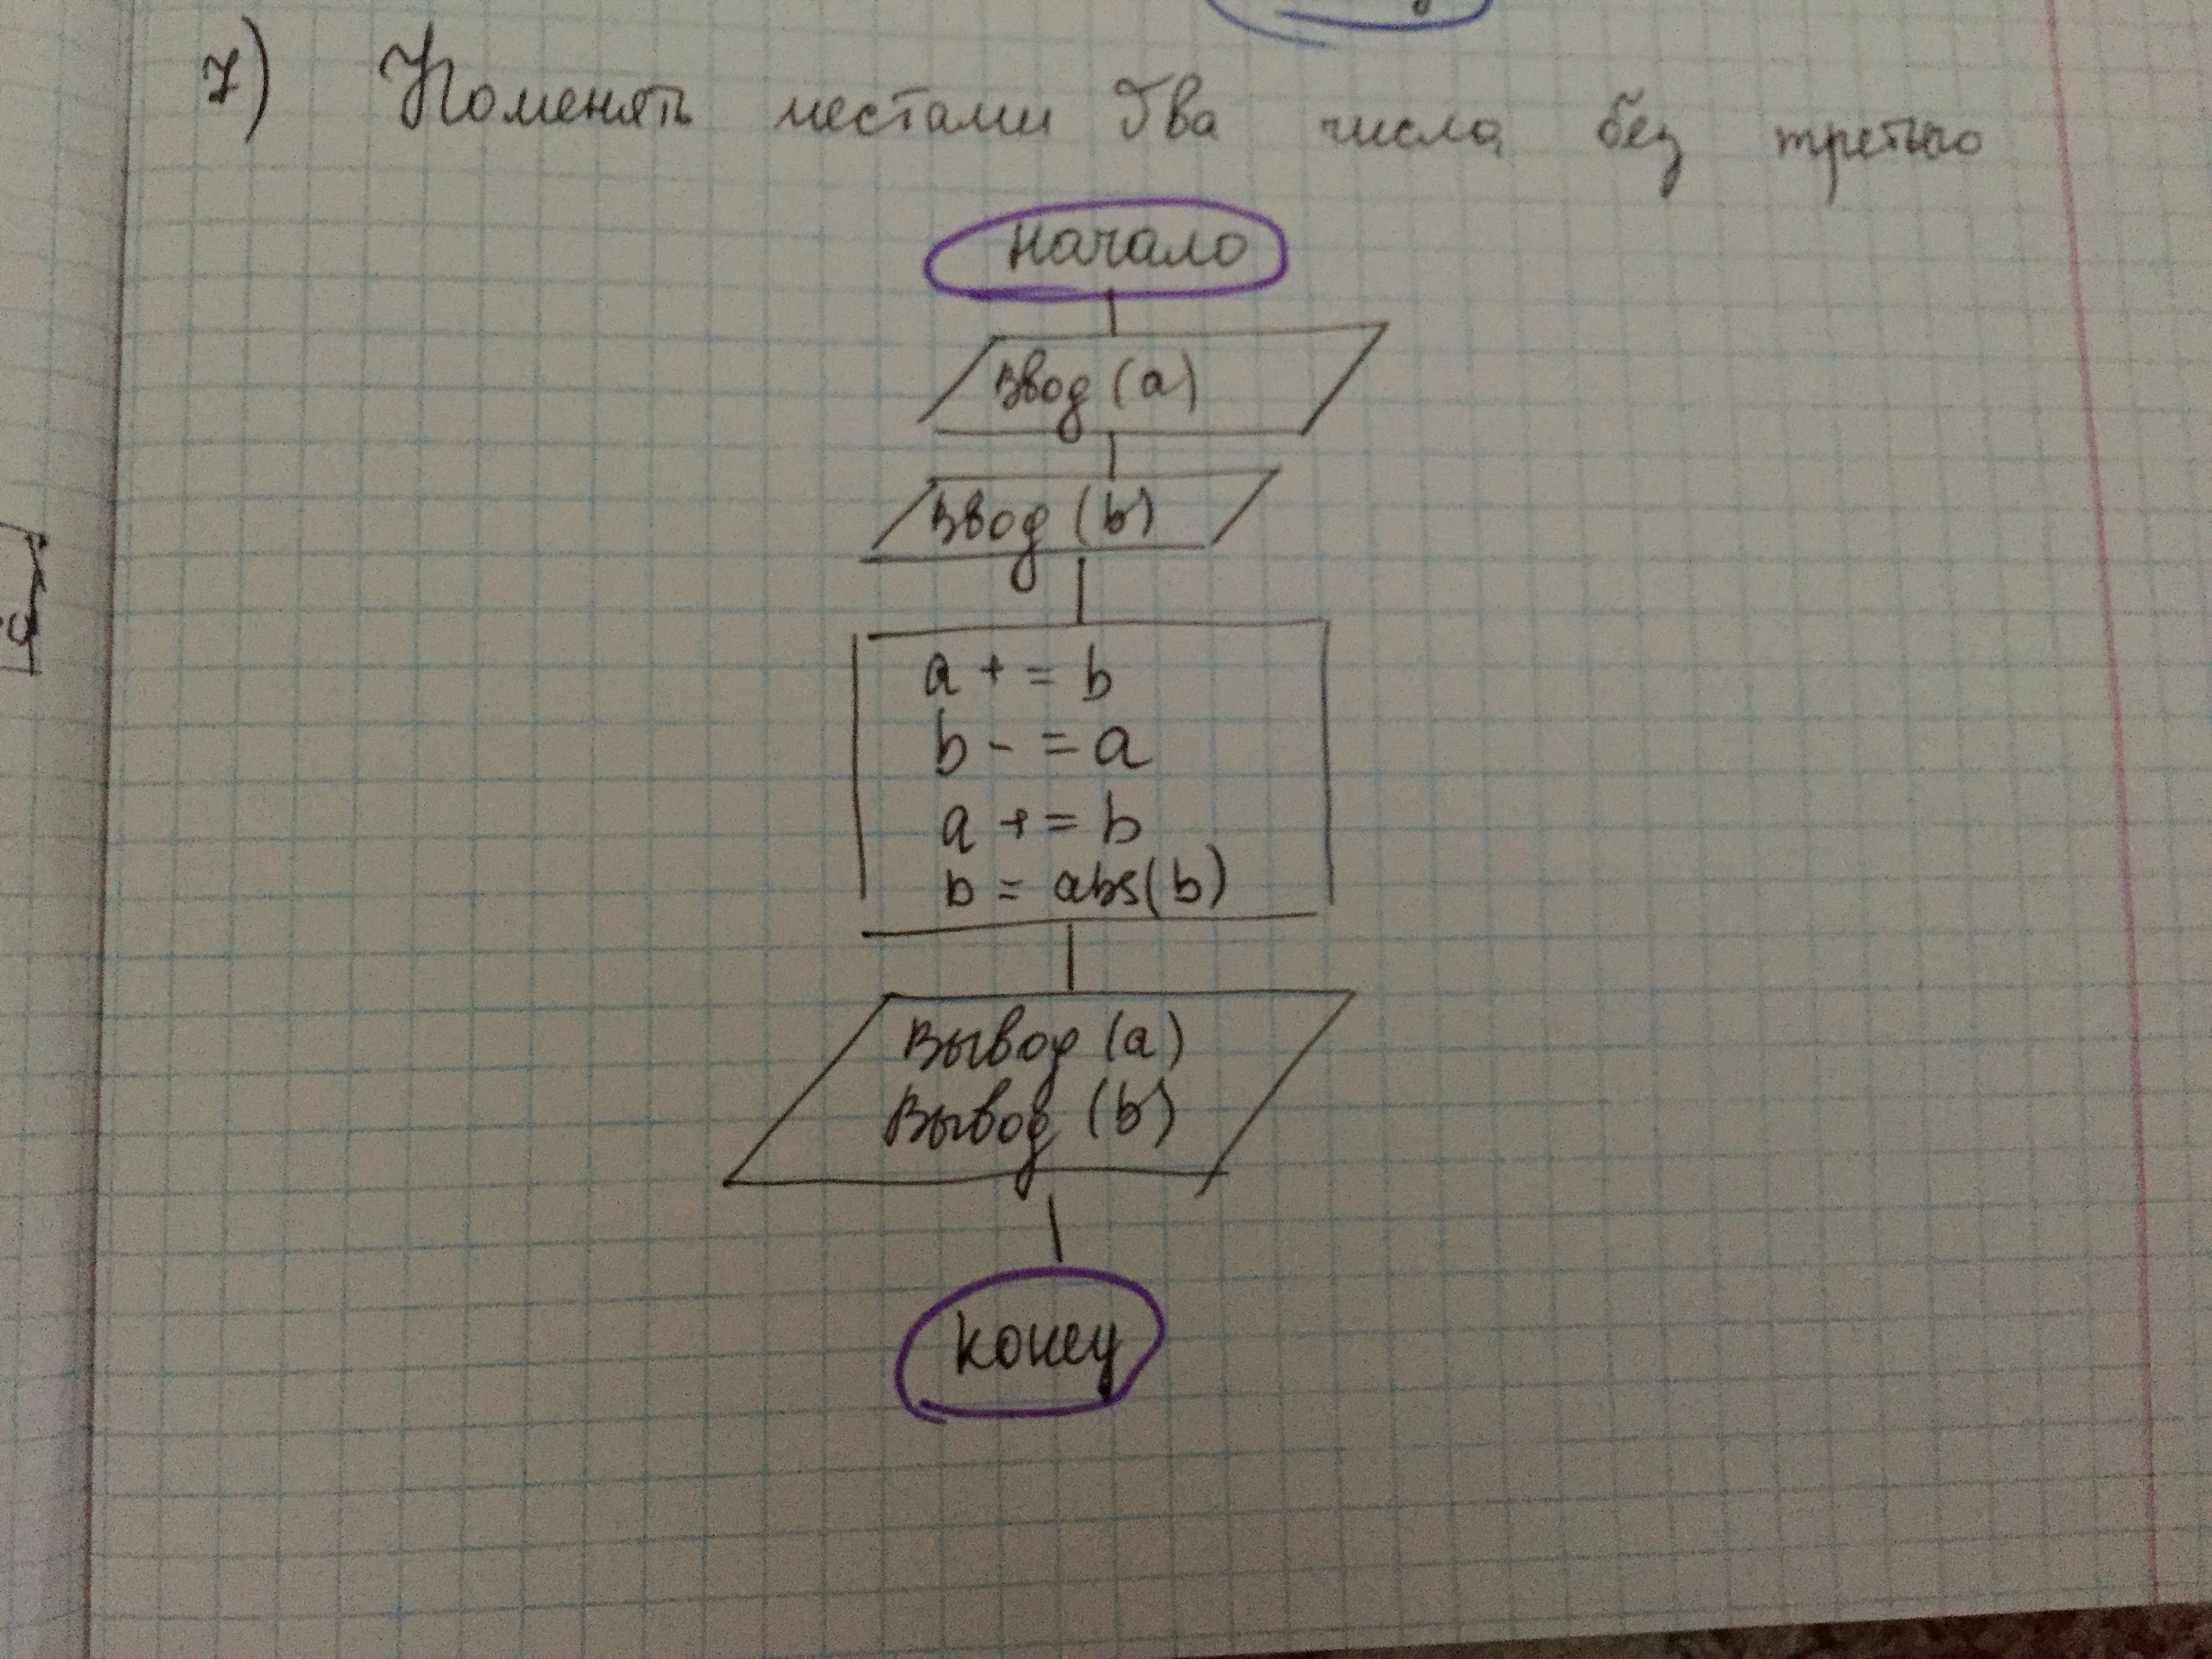 7) Поменять местами два числа без третьего
Начало
Ввод (a)
Ввод (b)
a + = b
b - = a
a + = b
b = abs(b)
Вывод (a)
Вывод (b)
Конец